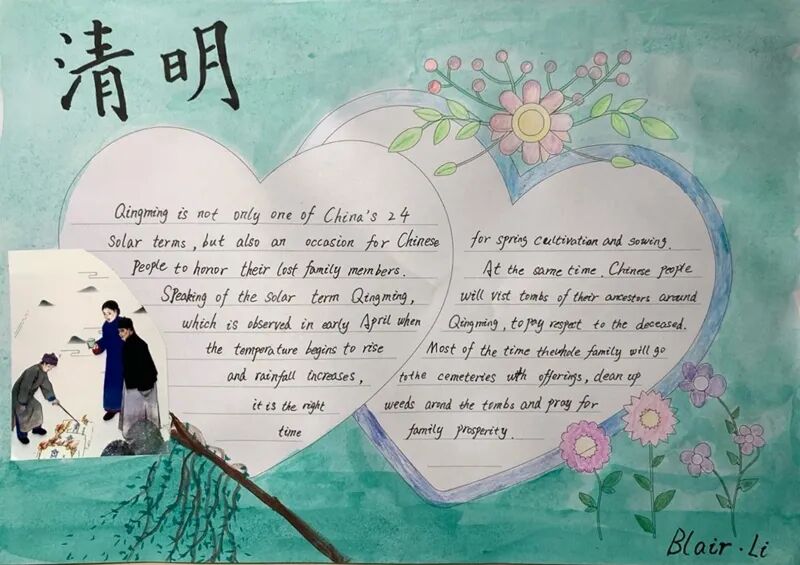 清明
Qingming is not only one of China's 24
Solar terms, but also an occasion for Chinese
People to honor their lost family members.
Speaking of the solar term Qingming,
which is observed in early April when
the temperature begins to rise
and rainfall increases,
it is the right
time
for spring cultivation and sowing.
At the same time. Chinese people
will vist tombs of their ancestors around
Qingming, to pay respect to the deceased.
Most of the time thewhole family will go
tothe cemeteries with offerings, clean up
weeds arond the tombs and pray for
family prosperity.
Blair·Li